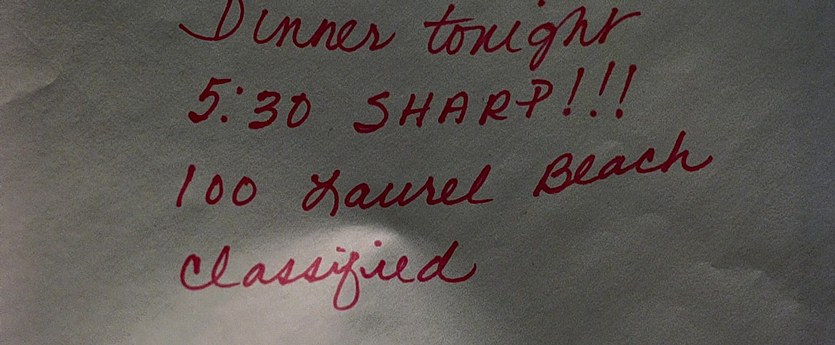 Dinner tonight
5:30 SHARP!!!
100 Laurel Beach
Classified